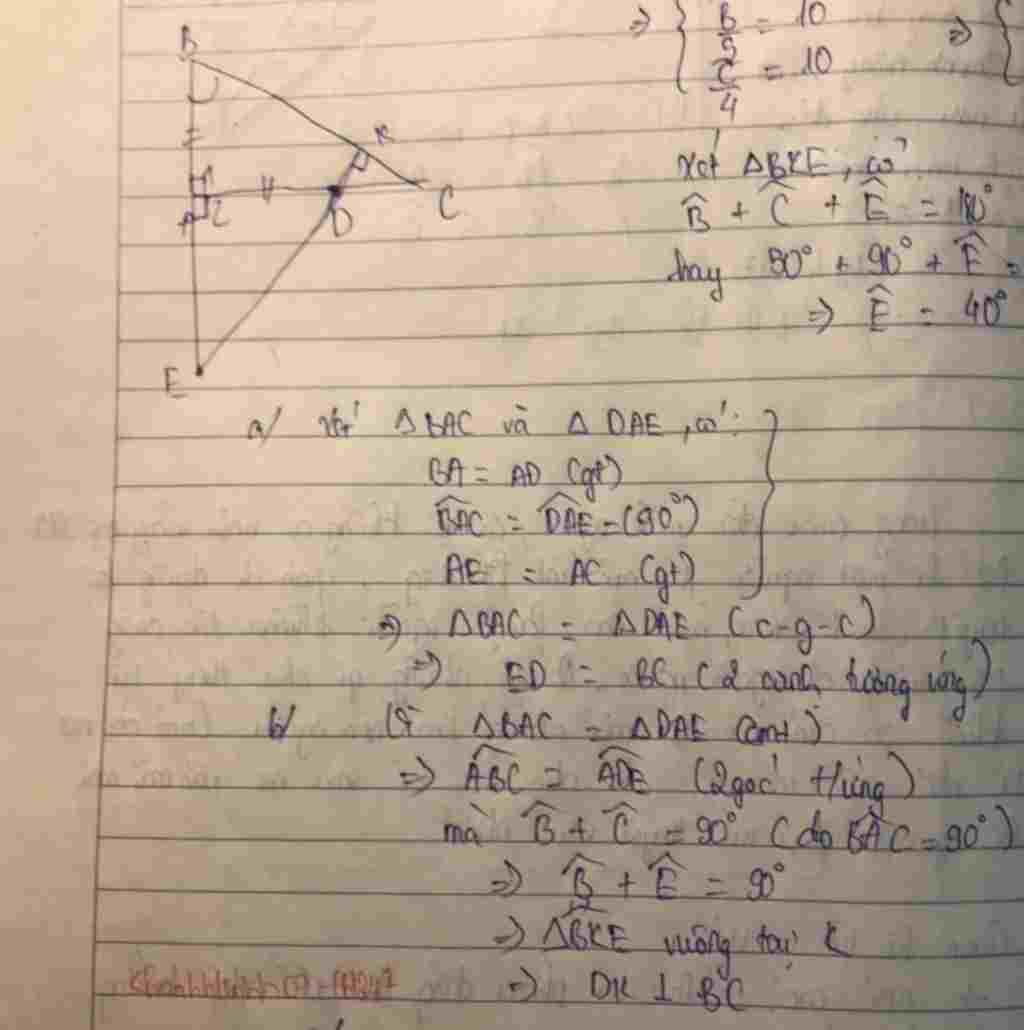 B
K
A
D
C
E
=> { B/5 = 10 => {
C/4 = 10
Xét ΔBKE, có
B̂ + Ĉ + Ê = 180°
hay 50° + 90° + Ê =
=> Ê = 40°
a/ Xét ΔBAC và ΔDAE, có:
BA = AD (gt)
B̂AC = D̂AE = (90°)
AE = AC (gt)
=> ΔBAC = ΔDAE (c-g-c)
=> ED = BC (2 cạnh tương ứng)
b/ ΔBAC = ΔDAE (cmt)
=> ÂBC = ÂDE (2 góc t/ứng)
mà B̂ + Ĉ = 90° (do BÂC = 90°)
=> B̂ + Ê = 90°
=> ΔBKE vuông tại K
=> DK ⊥ BC